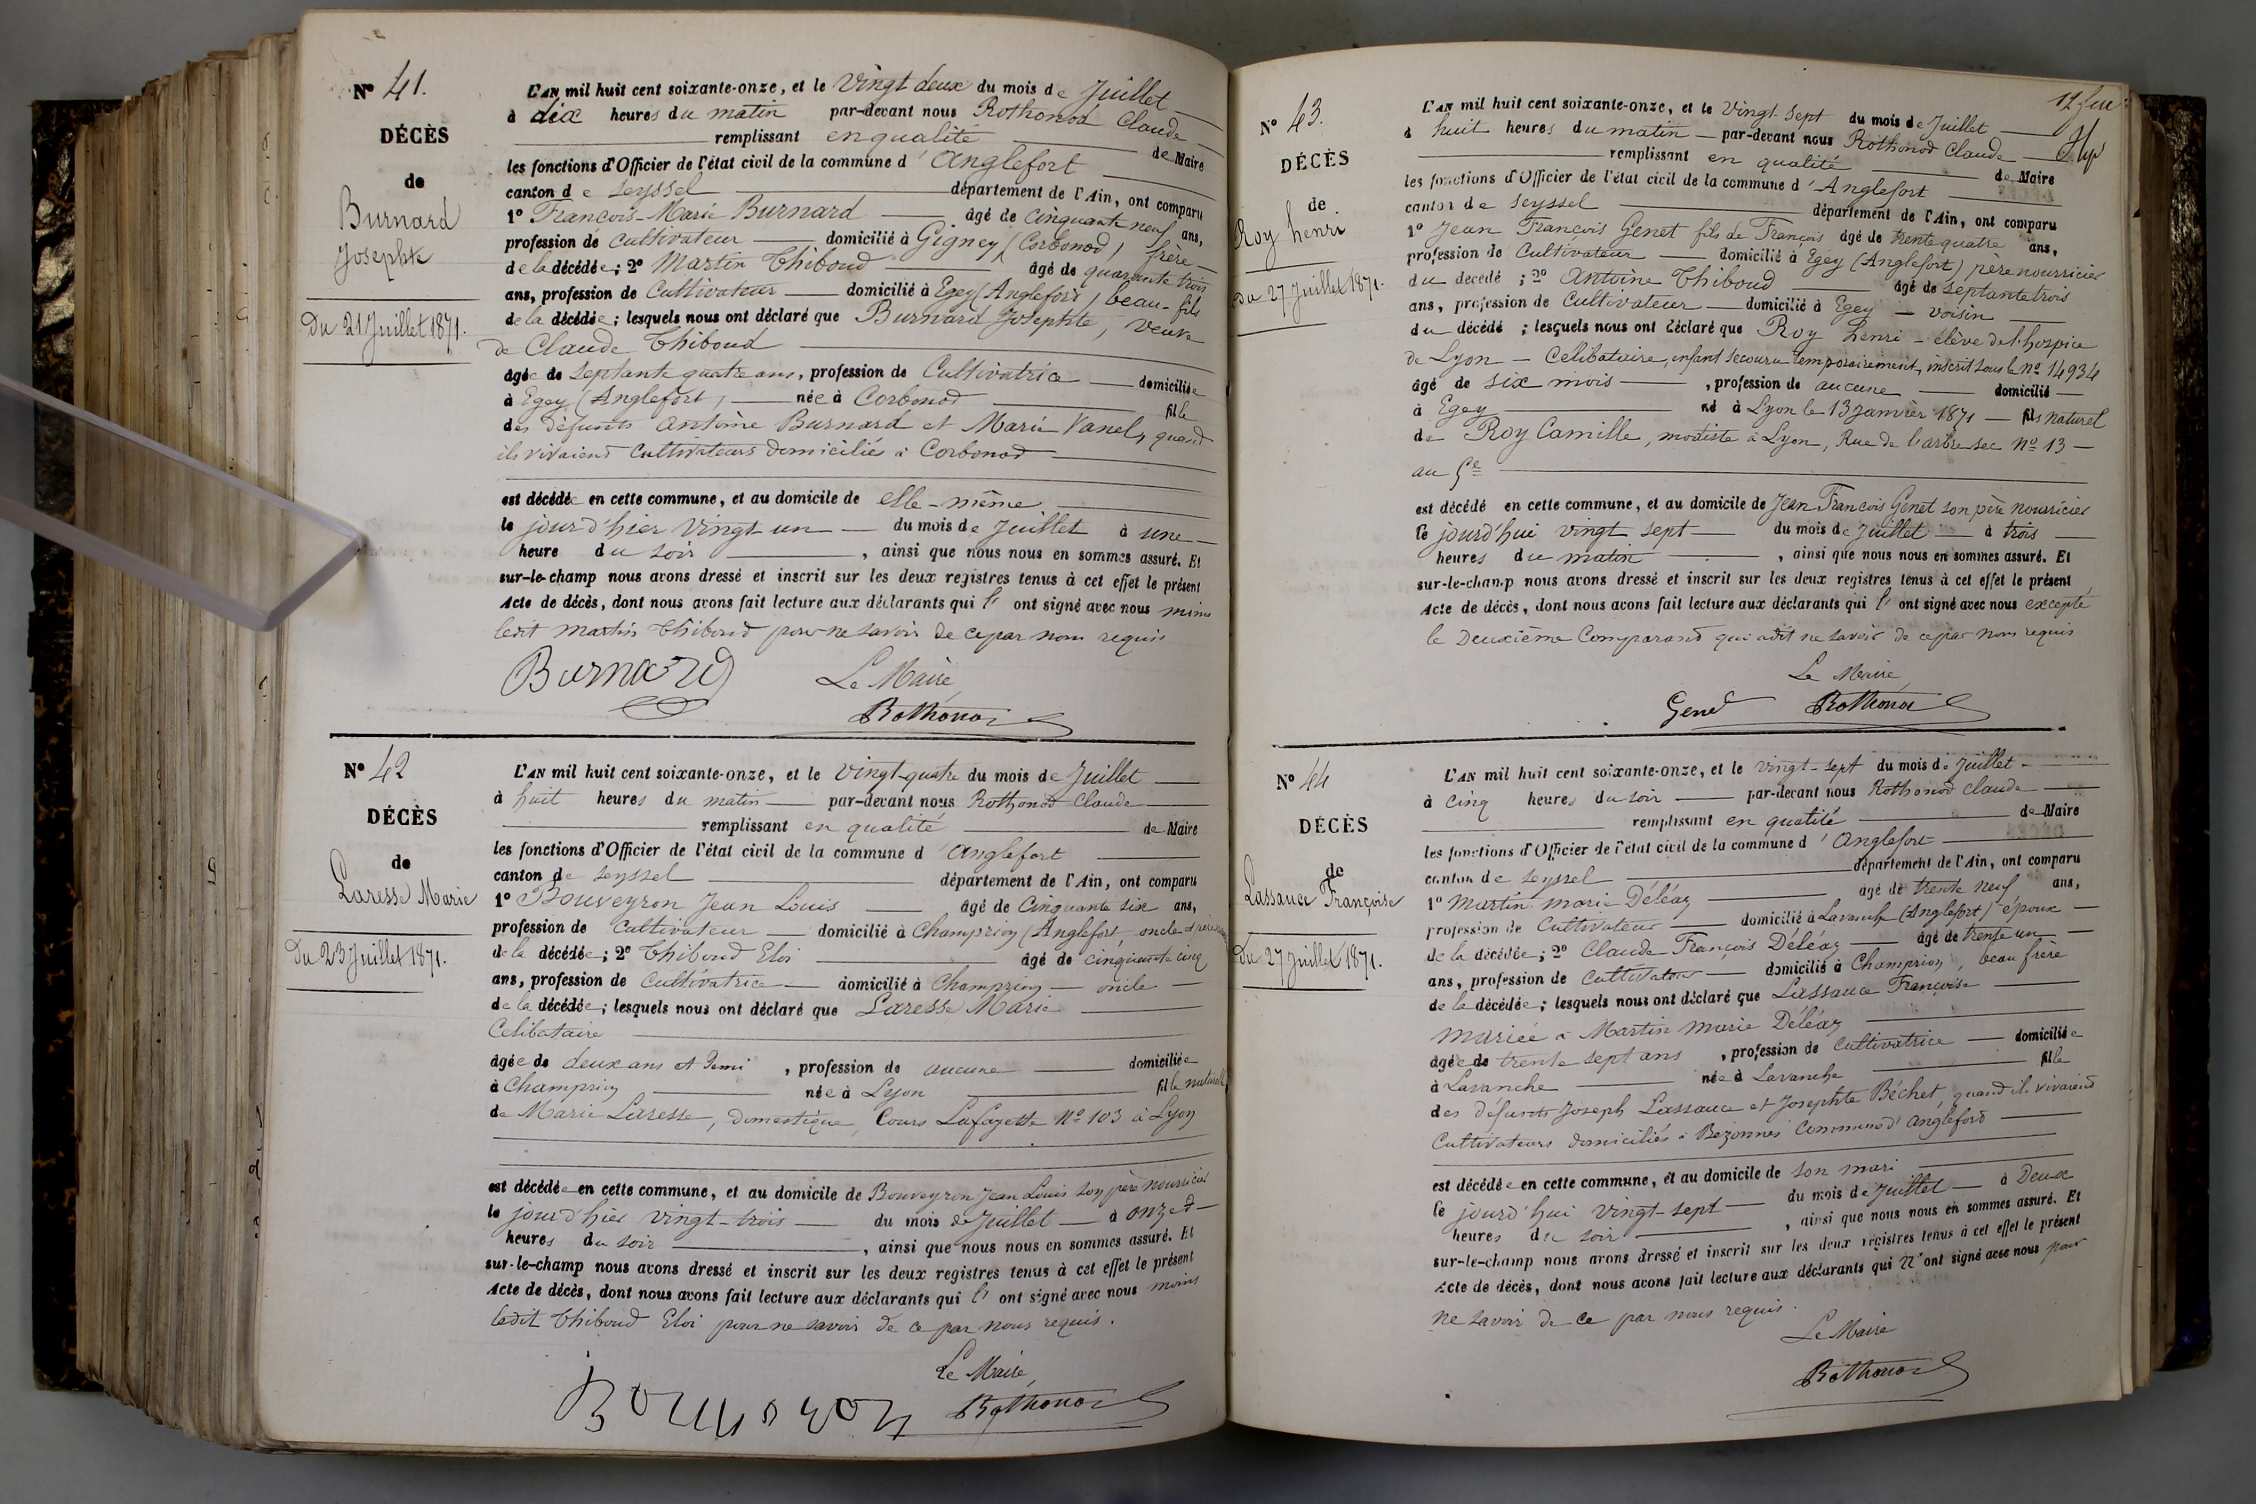 Nº 41.
DÉCÈS
de
Burnard
Josephte
Du 21 Juillet 1871.
L'AN mil huit cent soixante-onze, et le vingt deux du mois de Juillet
à dix heures du matin par-devant nous Rothonod Claude
remplissant en qualité de Maire
les fonctions d'Officier de l'état civil de la commune d'Anglefort
canton de Seyssel département de l'Ain, ont comparu
1º François-Marie Burnard âgé de cinquante neuf ans,
profession de cultivateur domicilié à Gigney (Corbonod) frère
de la décédée; 2º Martin Thiboud âgé de quarante trois
ans, profession de Cultivateur domicilié à Egey (Anglefort) beau-fils
de la décédée; lesquels nous ont déclaré que Burnard Josephte, veuve
de Claude Thiboud
âgée de septante quatre ans, profession de Cultivatrice domiciliée
à Egey (Anglefort) née à Corbonod fille
des défunts Antoine Burnard et Marie Vanel, quand
ils vivaient cultivateurs domiciliés à Corbonod
est décédée en cette commune, et au domicile de elle-même
le jourd'hier vingt un du mois de Juillet à une
heure du soir, ainsi que nous nous en sommes assuré. Et
sur-le-champ nous avons dressé et inscrit sur les deux registres tenus à cet effet le présent
Acte de décès, dont nous avons fait lecture aux déclarants qui l' ont signé avec nous moins
ledit Martin Thiboud pour ne savoir de ce par nous requis
Le Maire,
Burnard Rothonod
Nº 42
DÉCÈS
de
Laresse Marie
Du 23 Juillet 1871.
L'AN mil huit cent soixante-onze, et le vingt-quatre du mois de Juillet
à huit heures du matin par-devant nous Rothonod Claude
remplissant en qualité de Maire
les fonctions d'Officier de l'état civil de la commune d'Anglefort
canton de Seyssel département de l'Ain, ont comparu
1º Bouveyron Jean Louis âgé de Cinquante six ans,
profession de Cultivateur domicilié à Champrion (Anglefort, oncle
de la décédée; 2º Thiboud Eloi âgé de cinquante cinq
ans, profession de Cultivatrice domicilié à Champrion oncle
de la décédée; lesquels nous ont déclaré que Laresse Marie
Celibataire
âgée de deux ans et demi, profession de aucune domiciliée
à Champrion née à Lyon fille naturelle
de Marie Laresse, domestique, Cours Lafayette Nº 103 à Lyon
est décédée en cette commune, et au domicile de Bouveyron Jean Louis son père nourricier
le jourd'hier vingt-trois du mois de Juillet à onze
heures du soir, ainsi que nous nous en sommes assuré. Et
sur-le-champ nous avons dressé et inscrit sur les deux registres tenus à cet effet le présent
Acte de décès, dont nous avons fait lecture aux déclarants qui l' ont signé avec nous moins
ledit Thiboud Eloi pour ne savoir de ce par nous requis.
Le Maire,
Rothonod
Nº 43.
DÉCÈS
de
Roy henri
Du 27 Juillet 1871.
L'AN mil huit cent soixante-onze, et le vingt-sept du mois de Juillet
à huit heures du matin par-devant nous Rothonod Claude
remplissant en qualité de Maire
les fonctions d'Officier de l'état civil de la commune d'Anglefort
canton de Seyssel département de l'Ain, ont comparu
1º Jean François Genet fils de François âgé de trente quatre ans,
profession de Cultivateur domicilié à Egey (Anglefort) père nourricier
du décédé; 2º Antoine Thiboud âgé de septante trois
ans, profession de Cultivateur domicilié à Egey voisin
du décédé; lesquels nous ont déclaré que Roy henri élève de l'hospice
de Lyon - Celibataire, enfant secouru temporairement, inscrit sous le nº 14934
âgé de six mois, profession de aucune domicilié
à Egey né à Lyon le 13 janvier 1871 fils naturel
de Roy Camille, modiste à Lyon, Rue de l'arbre sec Nº 13
au 5e
est décédé en cette commune, et au domicile de Jean François Genet son père nourricier
le jourd'hui vingt sept du mois de Juillet à trois
heures du matin, ainsi que nous nous en sommes assuré. Et
sur-le-champ nous avons dressé et inscrit sur les deux registres tenus à cet effet le présent
Acte de décès, dont nous avons fait lecture aux déclarants qui l' ont signé avec nous excepté
le Deuxième Comparant qui a dit ne savoir de ce par nous requis
Le Maire,
Genet Rothonod
Nº 44
DÉCÈS
de
Lassauce Françoise
Du 27 Juillet 1871.
L'AN mil huit cent soixante-onze, et le vingt-sept du mois de Juillet
à cinq heures du soir par-devant nous Rothonod Claude
remplissant en qualité de Maire
les fonctions d'Officier de l'état civil de la commune d'Anglefort
canton de Seyssel département de l'Ain, ont comparu
1º Martin Marie Déléaz âgé de trente neuf ans,
profession de Cultivateur domicilié à Lavanche (Anglefort) époux
de la décédée; 2º Claude François Déléaz âgé de trente un
ans, profession de Cultivateur domicilié à Champrion, beau frère
de la décédée; lesquels nous ont déclaré que Lassauce Françoise
mariée à Martin Marie Déléaz
âgée de trente sept ans, profession de Cultivatrice domiciliée
à Lavanche née à Lavanche fille
des défunts Joseph Lassauce et Josephte Béchet, quand ils vivaient
Cultivateurs domiciliés à Bezonnes Commune d'Anglefort
est décédée en cette commune, et au domicile de son mari
le jourd'hui vingt-sept du mois de Juillet à Deux
heures du soir, ainsi que nous nous en sommes assuré. Et
sur-le-champ nous avons dressé et inscrit sur les deux registres tenus à cet effet le présent
Acte de décès, dont nous avons fait lecture aux déclarants qui n'ont signé avec nous pour
ne savoir de ce par nous requis.
Le Maire
Rothonod